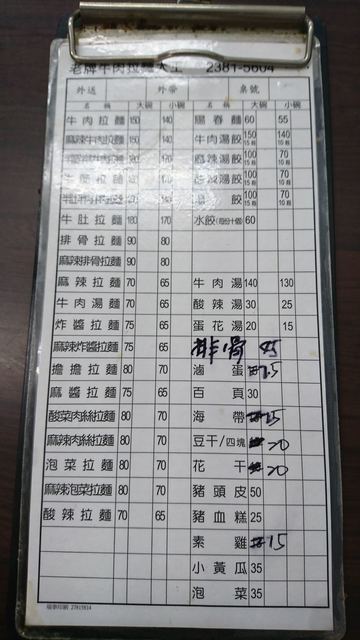 老牌牛肉拉麵大王 2381-5604
外送 外帶 桌號
名稱 大碗 小碗 名稱 大碗 小碗
牛肉拉麵 150 140 陽春麵 60 55
麻辣牛肉拉麵 150 140 牛肉湯餃 150 15粒 140 10粒
麻辣湯餃 100 15粒 70 10粒
拉麵 湯餃 100 15粒 70 10粒
拉麵 餃 100 15粒 70 10粒
牛肚拉麵 180 170 水餃 60
排骨拉麵 90 80
麻辣排骨拉麵 90 80
麻辣拉麵 70 65 牛肉湯 140 130
牛肉湯麵 70 65 酸辣湯 30 25
炸醬拉麵 75 65 蛋花湯 20 15
麻辣炸醬拉麵 75 65 排骨 45
擔擔拉麵 80 70 滷蛋 15
麻醬拉麵 75 65 百頁 30
酸菜肉絲拉麵 80 70 海帶 15
麻辣肉絲拉麵 80 70 豆干/四塊 20
泡菜拉麵 80 70 花干 20
麻辣泡菜拉麵 80 70 豬頭皮 50
酸辣拉麵 70 65 豬血糕 25
素雞 15
小黃瓜 35
泡菜 35
27815814